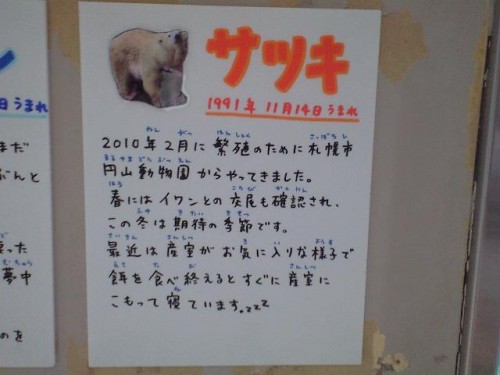 サツキ
1991年 11月14日うまれ
2010年2月に繁殖のために札幌市
円山動物園からやってきました。
春にはイワンとの交尾も確認され、
この冬は期待の季節です。
最近は産室がお気に入りな様子で
餌を食べ終えるとすぐに産室に
こもって寝ています。zzz
日うまれ
まだ
ぶんと
った
夢中
のを